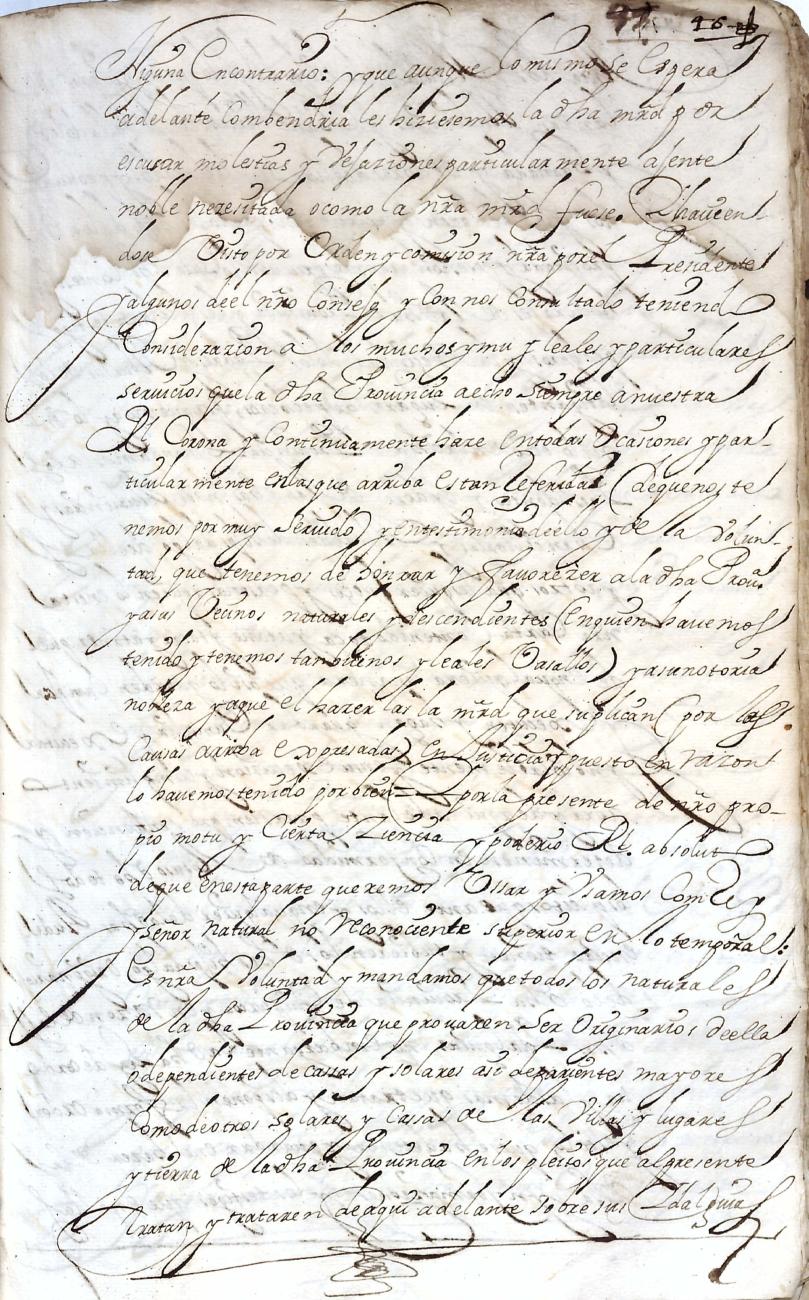 96
Niguna Encontrario: yque aunque lo mismo se Espera
adelante Combendria les hiziesemos la dha mrd por
escusar molestias y desazones particularmente asente
noble nezesitada o como la nra mrd fuese. Ehavien
dose Visto por Orden y comision nra porel Presidente
y algunos deel nro Consejo y Con nos Consultado teniendo
Considerazion a los muchos y muy leales y particulares
servicios quela dha Provincia aecho siempre a nuestra
Rl Corona y Continuamente haze entodas Ocasiones ypar-
ticularmente enlasque arriba estan Referidas (dequenos te
nemos por muy Servido) y entestimonio deello y de la Volun-
tad, que tenemos de honrrar y favorezer ala dha Prova.
yasus Vecinos naturales y descendientes (enquien havemos
tenido y tenemos tanbuenos y leales Vasallos) yasunotoria
nobleza yaque el hazerlas la mrd que suplican (por las
Causas arriba expresadas) es Justicia ypuesto en razon
lo havemos tenido por bien = E por la presente de nro pro-
pio motu y Cierta Ziencia y poderio Rl. absoluto
deque enesta parte queremos Ussar y Usamos Como Rey
y señor natural no Reconociente superior en lo temporal:
Es nra Voluntad y mandamos que todos los naturales
de la dha Provincia que provaren Ser Originarios deella
o dependientes de cassas y solares asi deparientes mayores
Como deotros solares y Cassas de las Villas y lugares
y tierra de la dha Provincia en los pleitos que alpresente
tratan y trataren deaqui adelante sobre sus Hidalguias